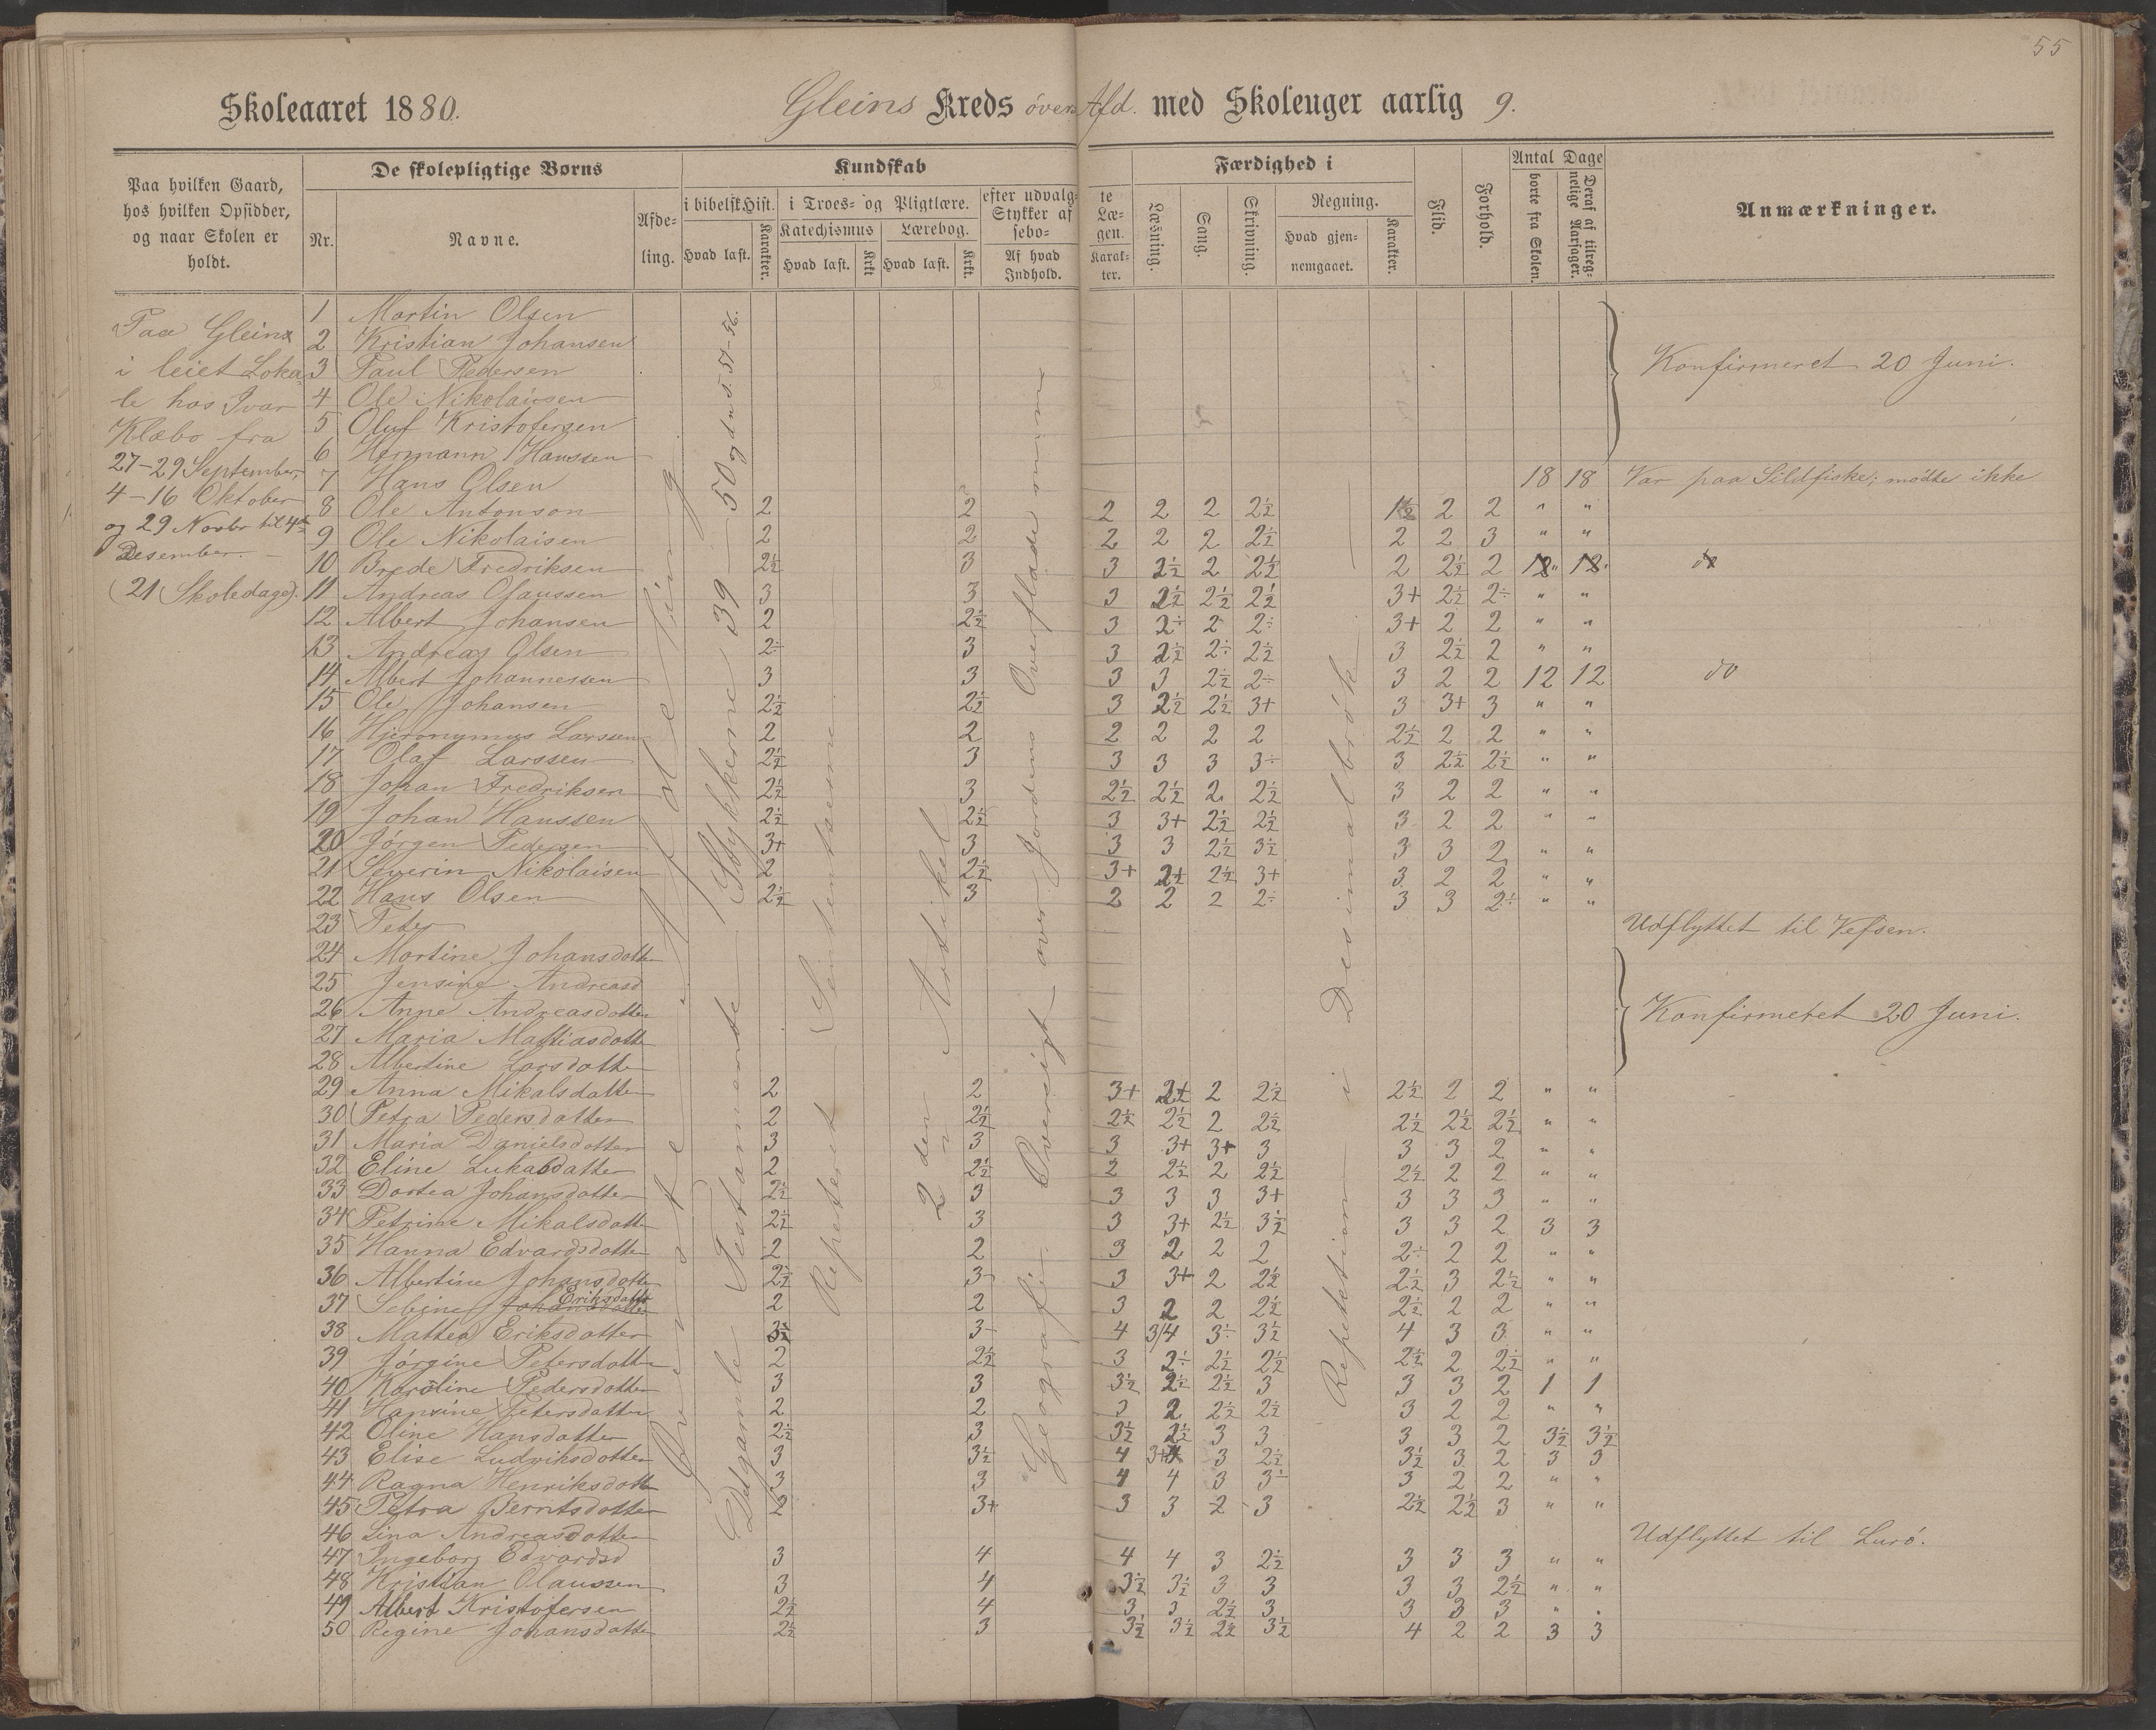 55
Skoleaaret 1880. Gleins Kreds övers Afd. med Skoleuger aarlig 9.
Paa hvilken Gaard, hos hvilken Opsidder, og naar Skolen er holdt.
De skolepligtige Børns
Nr. Navne.
Afdeling.
Kundskab
i bibelsk Hist. Hvad læst. Karakter.
i Troes- og Pligtlære.
Katechismus Hvad læst. Krkt.
Lærebog. Hvad læst. Krkt.
efter udvalgte Stykker af Læsebogen. Af hvad Indhold. Karakter.
Færdighed i
Læsning. Sang. Skrivning.
Regning. Hvad gjennemgaaet. Karakter.
Flid. Forhold.
Antal Dage
borte fra Skolen. Deraf af tilregnelige Aarsager.
Anmærkninger.
Paa Gleins
i leiet Loka
le hos Ivar
Klæbo fra
27-29 September,
4-16 Oktober
og 29 Novbr til 4de
Desember.
(21 Skoledage).
Överste Afdeling
Det gamle Testamente Stykkerne 39 - 50 og den 5. 51-56.
Repeteret Sententserne
2 den Artikel
Geografi. Oversigt over Jordens Overflade
Repetition i Desimalbrök
1 Martin Olsen
2 Kristian Johansen
3 Paul Pedersen
4 Ole Nikolaisen
5 Oluf Kristofersen
6 Hermann Hanssen
Konfirmeret 20 Juni.
7 Hans Olsen 18 18 Var paa Sildfiske; mödte ikke
8 Ole Antonson 2 2 2 2 2 2½ 1½ 2 2 " "
9 Ole Nikolaisen 2 2 2 2 2 2½ 2 2 3 " "
10 Brede Fredriksen 2½ 3 3 2½ 2 2½ 2 2½ 2 12 12 do
11 Andreas Olaussen 3 3 3 2½ 2½ 2½ 3+ 2½ 2÷ " "
12 Albert Johansen 2 2½ 3 2÷ 2 2÷ 3+ 2 2 " "
13 Andreas Olsen 2÷ 3 3 2½ 2÷ 2½ 3 2½ 2 " "
14 Albert Johannessen 3 3 3 3 2½ 2÷ 3 2 2 12 12 do
15 Ole Johansen 2½ 2½ 3 2½ 2½ 3+ 3 3+ 3 " "
16 Hjeronymus Larssen 2 2 2 2 2 2 2½ 2 2 " "
17 Olaf Larssen 2½ 3 3 3 3 3÷ 3 2½ 2½ " "
18 Johan Fredriksen 2½ 3 2½ 2½ 2 2½ 3 2 2 " "
19 Johan Hanssen 2½ 2½ 3 3+ 2½ 2½ 3 2 2 " "
20 Jörgen Pedersen 3+ 3 3 3 2½ 3½ 3 3 2 " "
21 Severin Nikolaisen 2 2½ 3+ 2+ 2½ 3+ 3 2 2 " "
22 Hans Olsen 2½ 3 2 2 2 2÷ 3 3 2÷ " "
23 Peter Udflyttet til Vefsen.
24 Martine Johansdatter
25 Jensine Andreasd
26 Anne Andreasdatter
27 Maria Mattiasdatter
28 Albertine Larsdatter
Konfirmeret 20 Juni.
29 Anna Mikalsdatter 2 2 3+ 2+ 2 2½ 2½ 2 2 " "
30 Petra Pedersdatter 2 2½ 2½ 2½ 2 2½ 2½ 2½ 2½ " "
31 Maria Danielsdatter 3 3 3 3+ 3+ 3 3 3 2 " "
32 Eline Lukasdatter 2 2½ 2 2½ 2 2½ 2½ 2 2 " "
33 Dortea Johansdatter 2½ 3 3 3 3 3+ 3 3 3 " "
34 Petrine Mikalsdatter 2½ 3 3 3+ 2½ 3½ 3 3 2 3 3
35 Hanna Edvardsdatter 2 2 3 2 2 2 2÷ 2 2 " "
36 Albertine Johansdatter 2½ 3 3 3+ 2 2½ 2½ 3 2½ " "
37 Sebine Johansdatter Eriksdatter 2 2 3 2 2 2½ 2½ 2 2 " "
38 Mattea Eriksdatter 3½ 3- 4 3/4 3÷ 3½ 4 3 3 " "
39 Jörgine Petersdatter 2 2½ 3 2÷ 2½ 2½ 2½ 2 2½ " "
40 Karoline Pedersdatter 3 3 3½ 2½ 2½ 3 3 3 2 1 1
41 Hansine Petersdatter 2 2 3 2 2½ 2½ 3 2 2 " "
42 Oline Hansdatter 2½ 3 3½ 2½ 3 3 3 3 2 3½ 3½
43 Elise Ludviksdatter 3 3½ 4 3+ 3 2½ 3½ 3 2 3 3
44 Ragna Henriksdatter 3 3 4 4 3 3÷ 3 2 2 " "
45 Petra Berntsdatter 2 3+ 3 3 2 3 2½ 2½ 3 " "
46 Lina Andreasdatter Udflyttet til Lurö.
47 Ingeborg Edvardsd 3 4 4 4 3 2½ 3 3 3 " "
48 Kristian Olaussen 3 4 3½ 3½ 3 3 3 3 2½ " "
49 Albert Kristofersen 2½ 4 3 3 2½ 3 3 3 3 " "
50 Regine Johansdatter 2½ 3 3½ 3½ 2½ 3½ 4 2 2 3 3